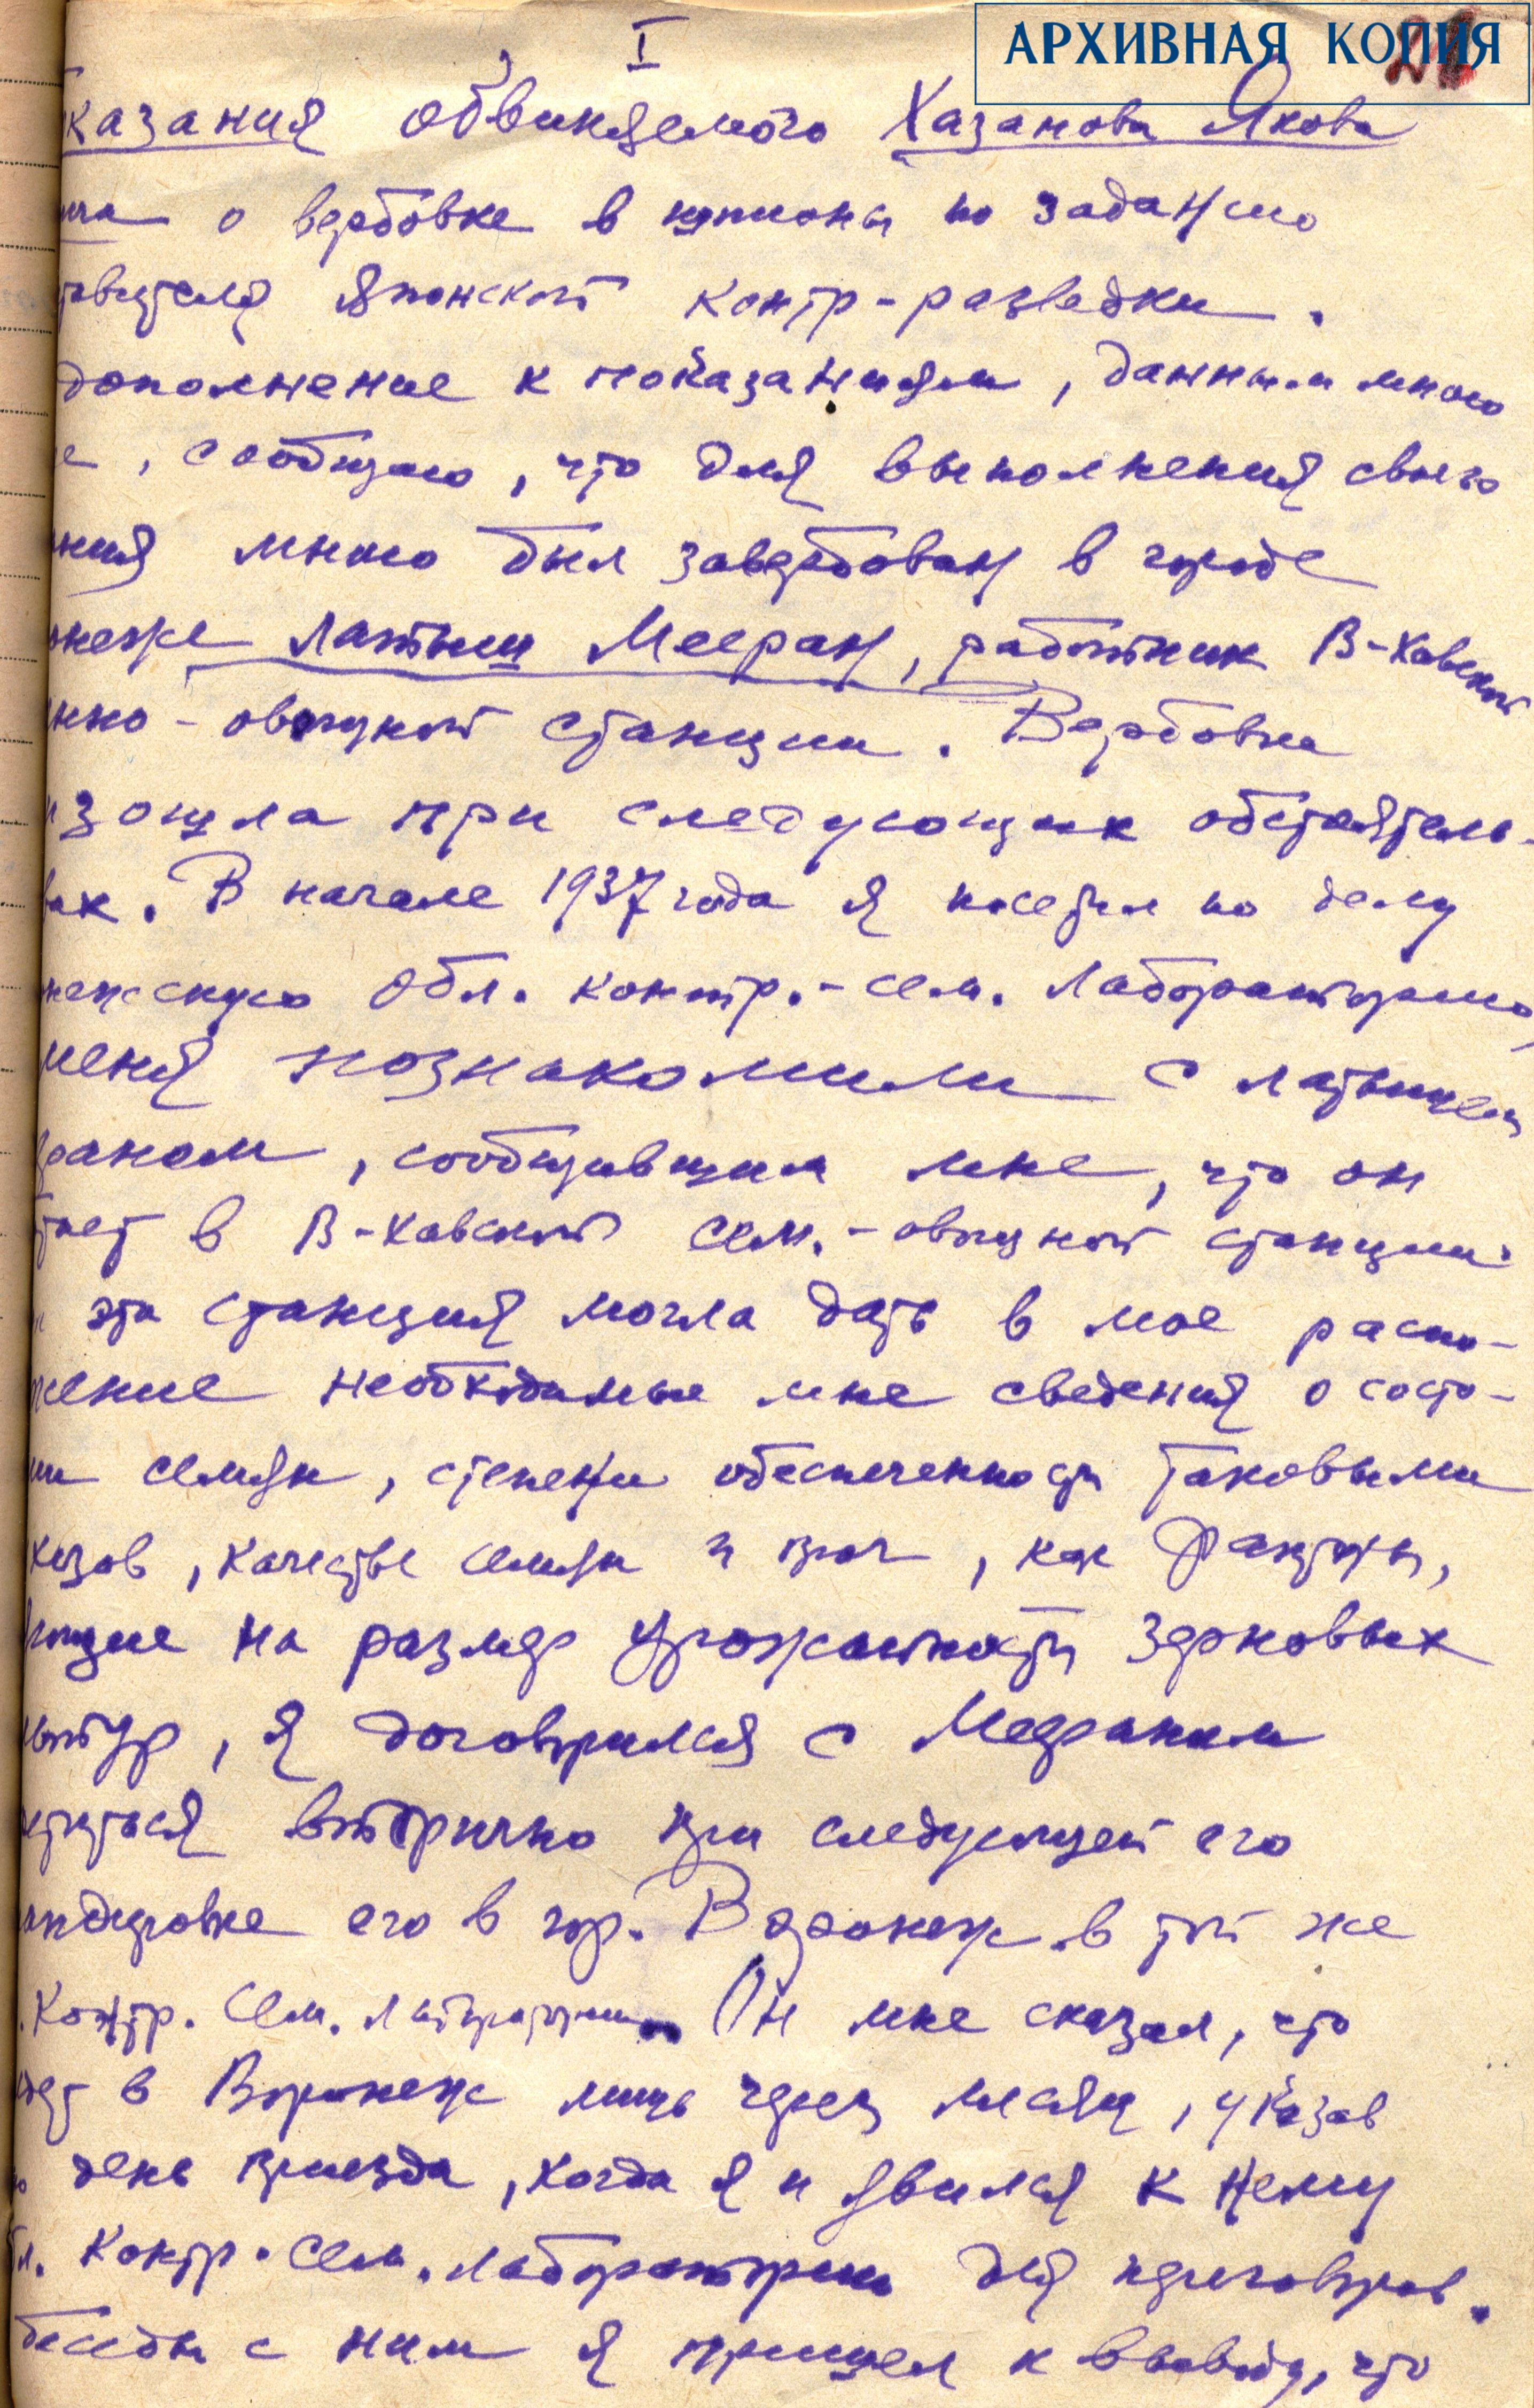 I
АРХИВНАЯ КОПИЯ
казания обвиняемого Хазанова Якова
ича о вербовке в шпионы по заданию
тавителя Японской контр-разведки.
дополнение к показаниям, данным мною
е, сообщаю, что для выполнения своего
ния мною был завербован в городе
онеже латыш Мееран, работник В-Хавской
нно-овощной станции. Вербовка
изошла при следующих обстоятель-
вах. В начале 1937 года я посетил по делу
нежскую Обл. контр.-сем. лабораторию,
меня познакомили с латышем
раном, сообщившим мне, что он
тает в В-Хавской сем.-овощной станции.
эта станция могла дать в мое распо-
жение необходимые мне сведения о состо-
ии семян, степени обеспеченности таковыми
хозов, качестве семян и проч, как факторы,
яющие на размер урожайности зерновых
льтур, я договорился с Меераном
етиться вторично при следующей его
андировке его в гор. Воронеж в той же
. Контр. Сем. лаборатории. Он мне сказал, что
едет в Воронеж лишь через месяц, указав
день приезда, когда я и явился к нему
бл. Контр. сем. лабораторию для переговоров.
беседы с ним я пришел к выводу, что